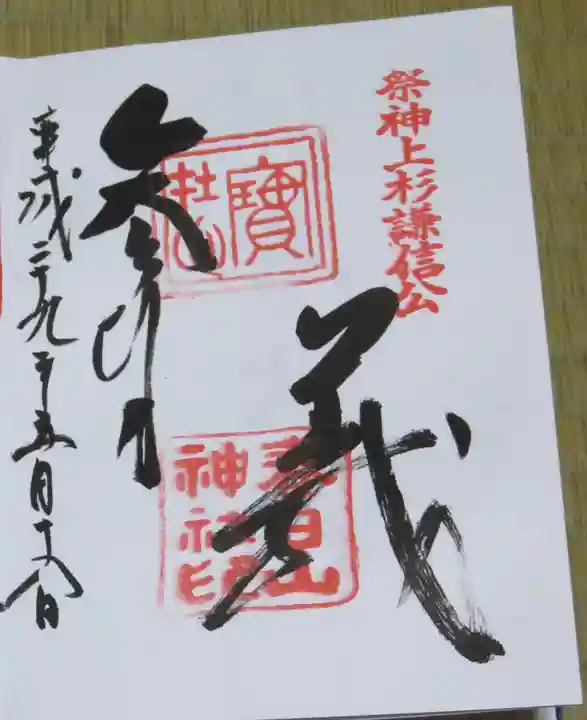 祭神上杉謙信公
義
寶
牡丹
春日山
神社印
参拝
平成二十九年五月十八日